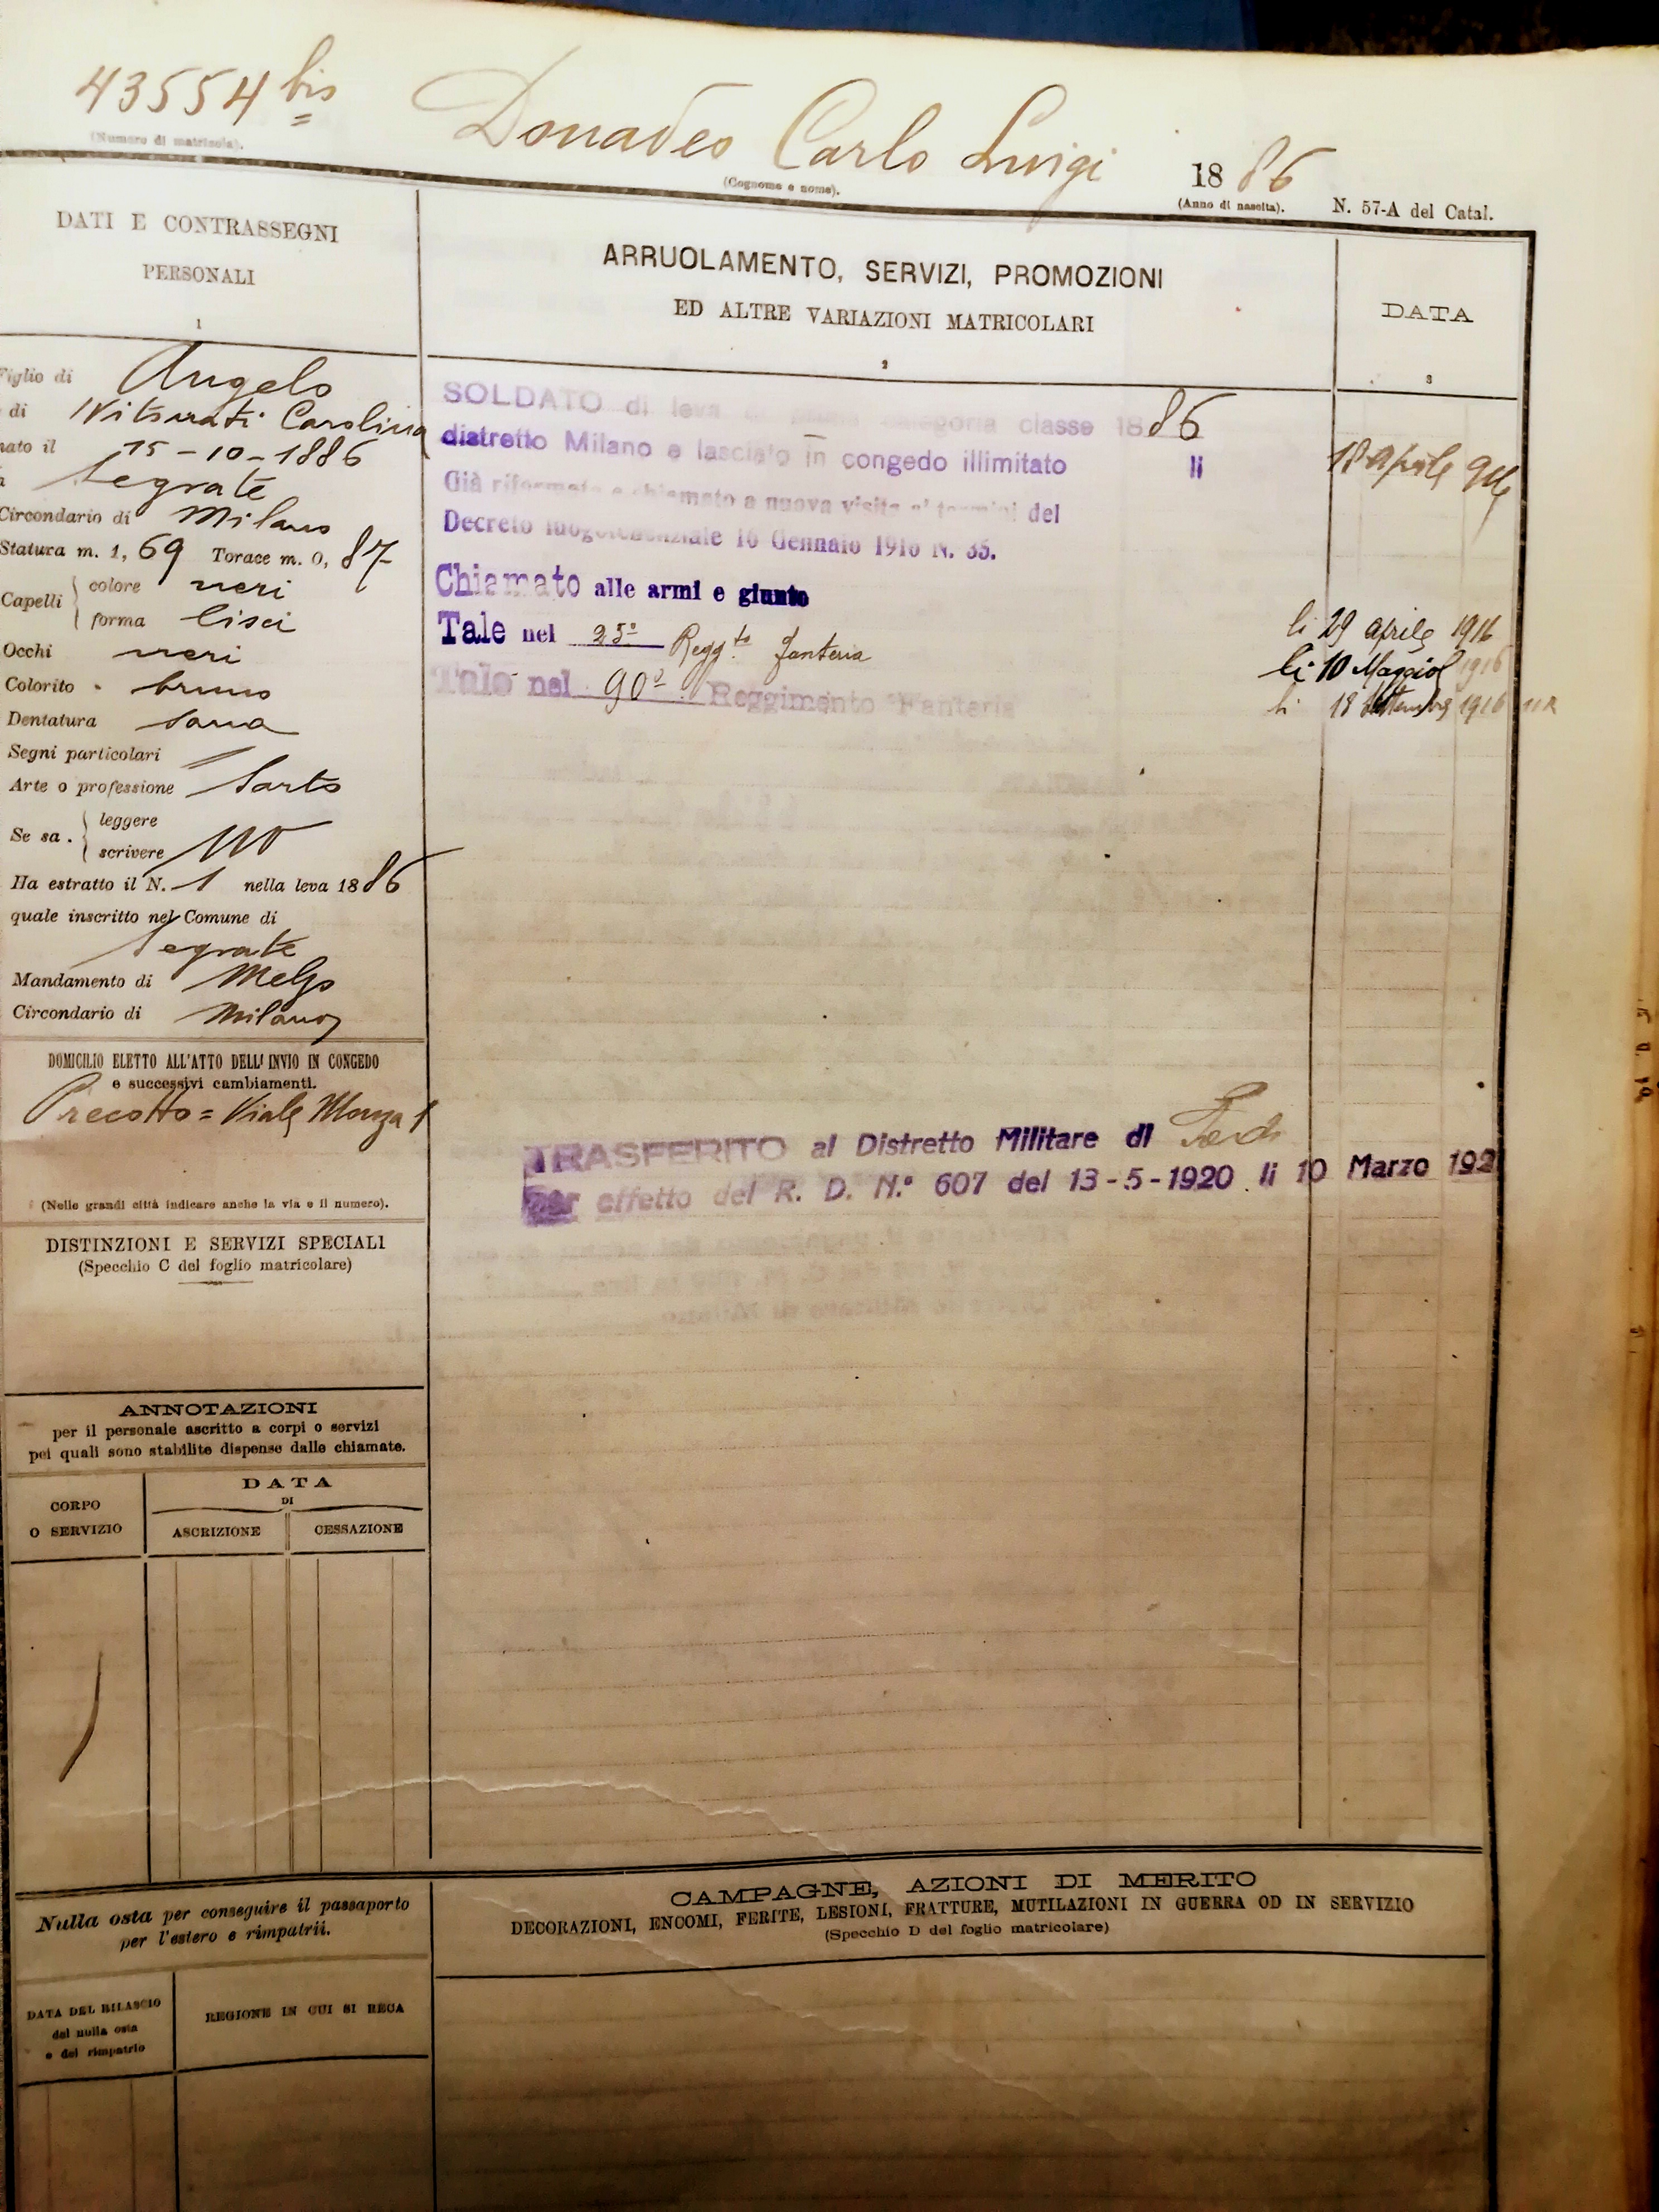 43554 bis Donadeo Carlo Luigi 1886
(Numero di matricola). (Cognome e nome). (Anno di nascita). N. 57-A del Catal.
DATI E CONTRASSEGNI
PERSONALI
1
Figlio di Angelo
di Carolina
nato il 15-10-1886
Segrate
Circondario di Milano
Statura m. 1, 69 Torace m. 0, 87
Capelli colore neri
forma lisci
Occhi neri
Colorito bruno
Dentatura sana
Segni particolari
Arte o professione Sarto
Se sa. leggere
scrivere no
Ha estratto il N. 1 nella leva 1886
quale inscritto nel Comune di
Segrate
Mandamento di Melzo
Circondario di Milano
DOMICILIO ELETTO ALL'ATTO DELL'INVIO IN CONGEDO
e successivi cambiamenti.
Precotto = Viale Monza 1
(Nelle grandi città indicare anche la via e il numero).
DISTINZIONI E SERVIZI SPECIALI
(Specchio C del foglio matricolare)
ANNOTAZIONI
per il personale ascritto a corpi o servizi
pei quali sono stabilite dispense dalle chiamate.
CORPO
O SERVIZIO
DATA
DI
ASCRIZIONE CESSAZIONE
Nulla osta per conseguire il passaporto
per l'estero e rimpatrii.
DATA DEL RILASCIO
del nulla osta
e del rimpatrio
REGIONE IN CUI SI RECA
ARRUOLAMENTO, SERVIZI, PROMOZIONI
ED ALTRE VARIAZIONI MATRICOLARI
2
DATA
3
SOLDATO di leva categoria classe 1886
distretto Milano e lasciato in congedo illimitato li 18 aprile 916
Già riformato e chiamato a nuova visita ai termini del
Decreto luogotenenziale 16 Gennaio 1916 N. 35.
Chiamato alle armi e giunto li 29 aprile 1916
Tale nel 25° Regg.to fanteria li 10 Maggio 1916
Tale nel 90° Reggimento Fanteria li 18 Settembre 1916
TRASFERITO al Distretto Militare di
per effetto del R. D. N.° 607 del 13-5-1920 li 10 Marzo 192
CAMPAGNE, AZIONI DI MERITO
DECORAZIONI, ENCOMI, FERITE, LESIONI, FRATTURE, MUTILAZIONI IN GUERRA OD IN SERVIZIO
(Specchio D del foglio matricolare)